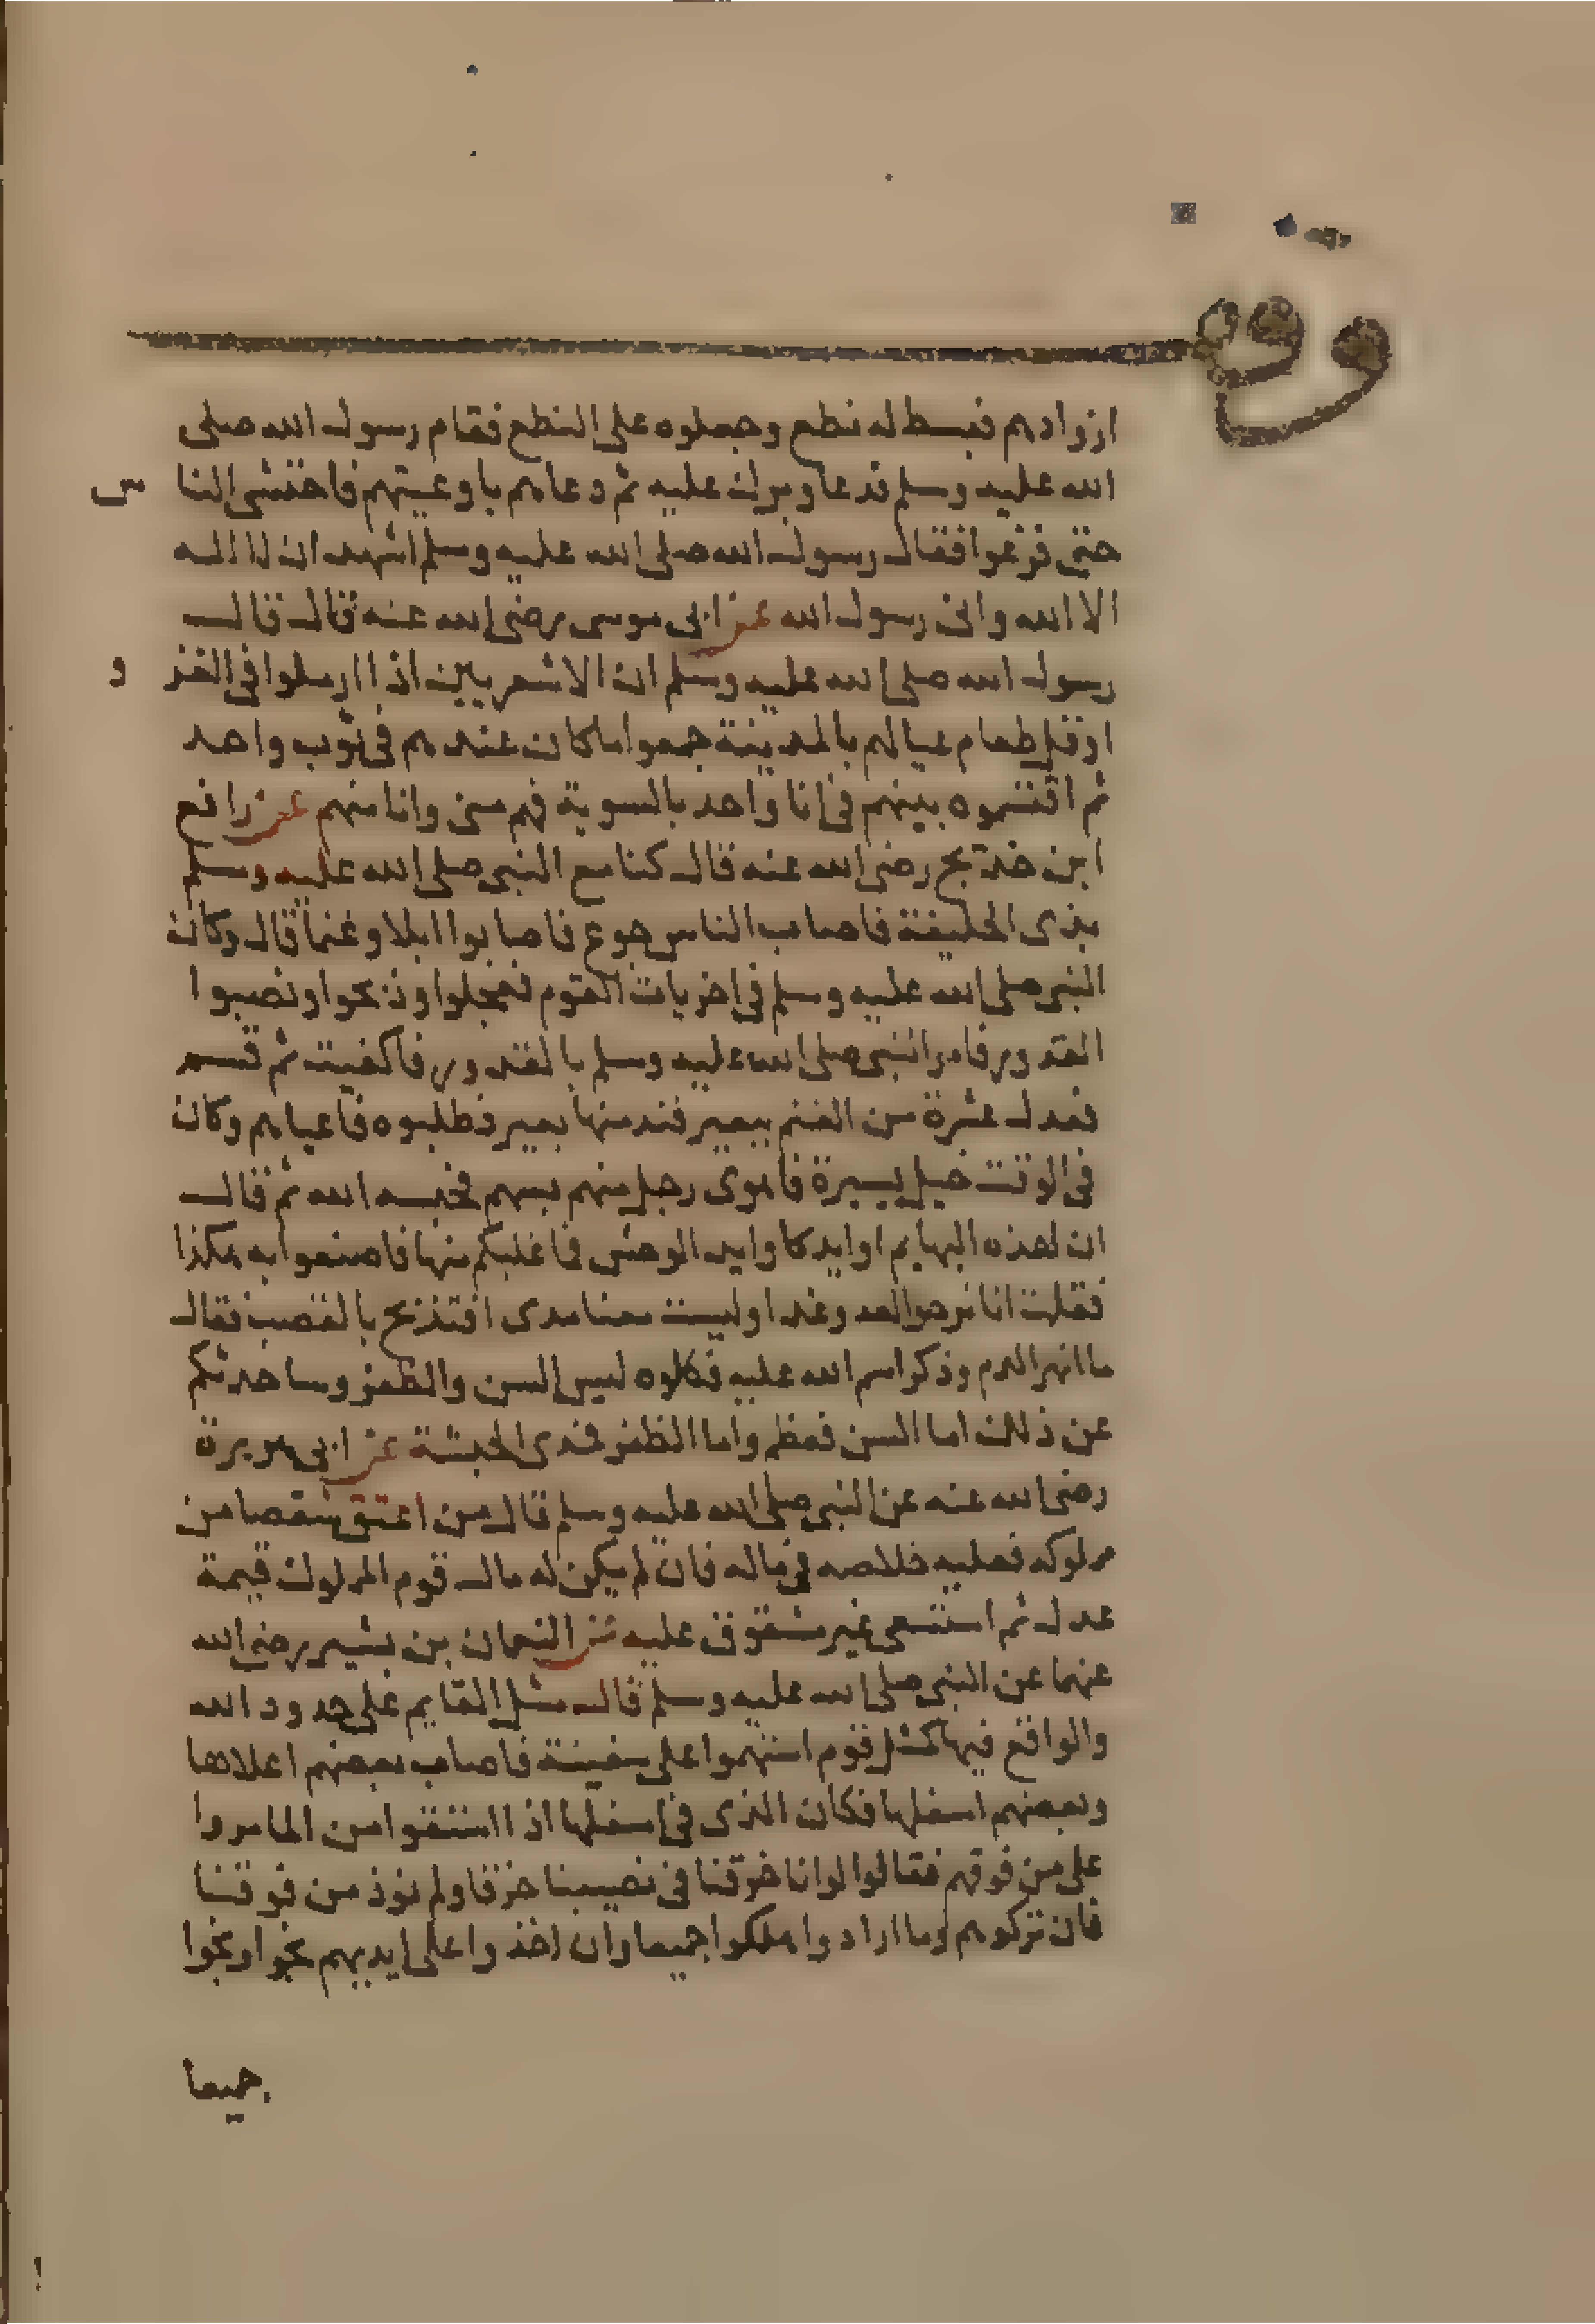 وقف
ازوادهم فبسط له نطع وجعلوه على النطع فقام رسول الله صلى
الله عليه وسلم فدعا وبرك عليه ثم دعاهم باوعيتهم فاحتثى النا
س
حتى فرغوا فقال رسول الله صلى الله عليه وسلم اشهد ان لا اله
الا الله وانى رسول الله عن ابى موسى رضى الله عنه قال قال
رسول الله صلى الله عليه وسلم ان الاشعريين اذا ارملوا فى الغز
و
او قل طعام عيالهم بالمدينة جمعوا ما كان عندهم فى ثوب واحد
ثم اقتسموه بينهم فى انا واحد بالسوية فهم منى وانا منهم عن رافع
ابن خديج رضى الله عنه قال كنا مع النبى صلى الله عليه وسلم
بذى الحليفة فاصاب الناس جوع فاصابوا ابلا وغنما قال وكان
النبى صلى الله عليه وسلم فى اخريات القوم فعجلوا وذبحوا ونصبوا
القدور فامر النبى صلى الله عليه وسلم بالقدور فاكفيت ثم قسم
فعدل عشرة من الغنم ببعير فند منها بعير فطلبوه فاعياهم وكان
فى الوقت خيل يسيرة فاهوى رجل منهم بسهم فحبسه الله ثم قال
ان لهذه البهايم اوابد كاوابد الوحش فما غلبكم منها فاصنعوا به هكذا
فقلت انا نرجوا العد وغدا وليست معنا مدى افتذبح بالقصب فقال
ما انهر الدم وذكر اسم الله عليه فكلوه ليس السن والظفر وساحدثكم
عن ذلك اما السن فعظم واما الظفر فمدى الحبشة عن ابى هريرة
رضى الله عنه عن النبى صلى الله عليه وسلم قال من اعتق شقصا من
مملوكه فعليه خلاصه فى ماله فان لم يكن له مال قوم المملوك قيمة
عدل ثم استسعى غير مشقوق عليه عن النعمان بن بشير رضى الله
عنهما عن النبى صلى الله عليه وسلم قال مثل القايم على حدود الله
والواقع فيها كمثل قوم استهموا على سفينة فاصاب بعضهم اعلاها
وبعضهم اسفلها فكان الذى فى اسفلها اذا استقوا من الما مروا
على من فوقهم فقالوا لو انا خرقنا فى نصيبنا خرقا ولم نوذ من فوقنا
فان تركوهم وما ارادوا هلكوا جميعا وان اخذوا على ايديهم نجوا ونجوا
جميعا